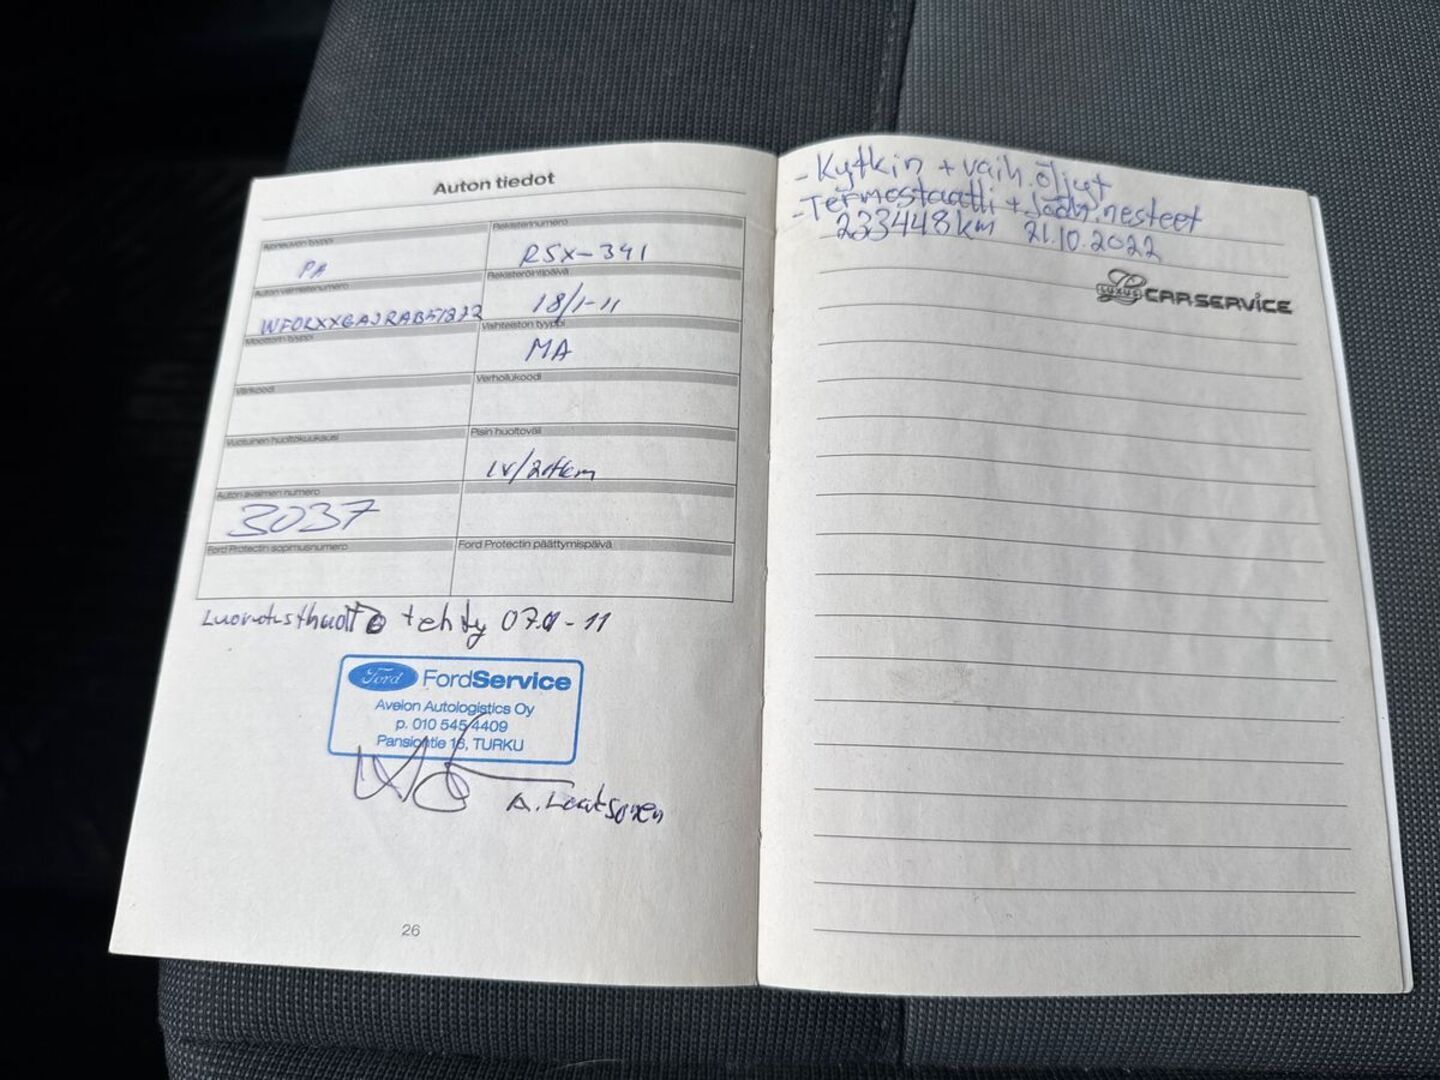 Auton tiedot
Ajoneuvon tyyppi
Rekisterinumero
PA
RSX-341
Auton valmistenumero
Rekisteröintipäivä
18/1-11
Moottorin tyyppi
Vaihteiston tyyppi
MA
Värikoodi
Verhoilukoodi
Vuotuinen huoltokuukausi
Pisin huoltoväli
Auton avaimen numero
3037
Ford Protectin sopimusnumero
Ford Protectin päättymispäivä
Luovutushuolto tehty
Ford FordService
Avelon Autologistics Oy
p. 010 545 4409
Pansiontie 16, TURKU
26
- Kytkin + vaih.öljyt
- Termostaatti + jäähd.nesteet
233448km 21.10.2022
LUXUS CARSERVICE